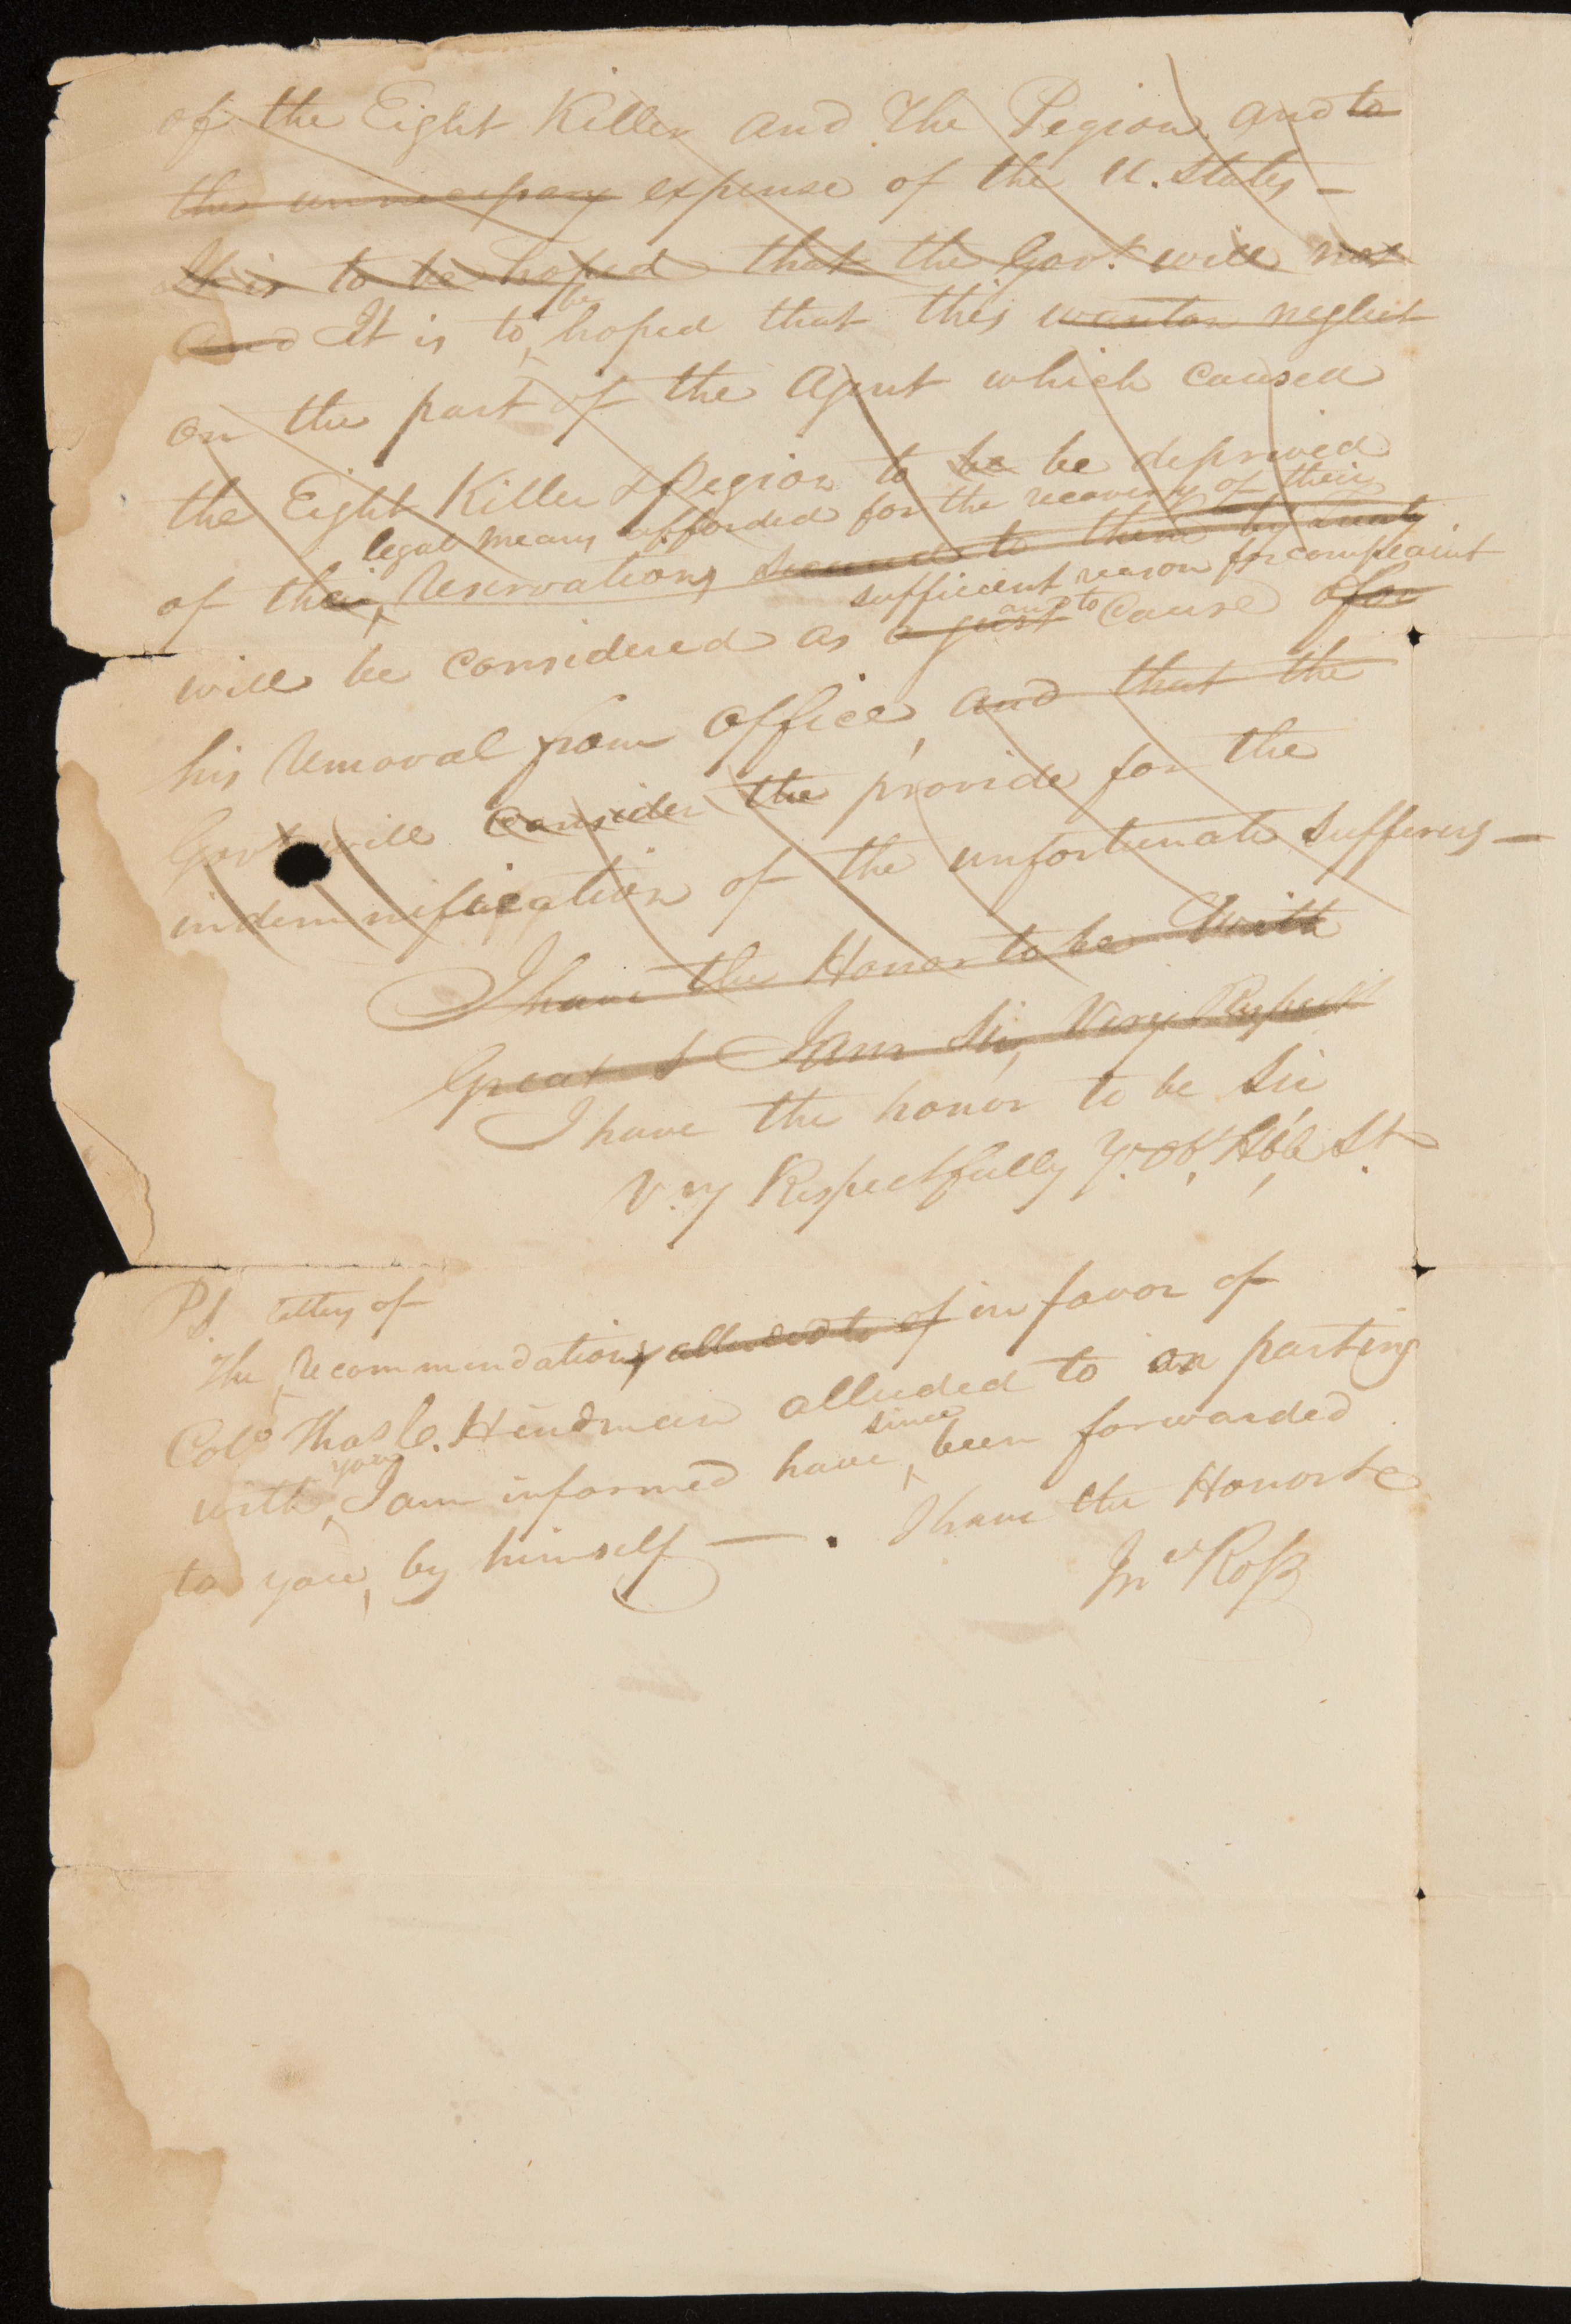 of the Eight Killer and The Pegion and to
the unnecessary expense of the U. States —
It is to be hoped that the Govt. will not
be
and It is to hoped that this wanton neglect
on the part of the Agent which caused
the Eight Killer & Pegion to be be deprived
legal means afforded for the recovery of their
of their, Reservations secured to them by Treaty
sufficient reason for complaint
and to
will be considered as a just cause for
his removal from office, and that the
Govt. will consider the provide for the
indemnification of the unfortunate sufferers —
I have the Honor to be With
Great & I am Sir, Very Respect
I have the honor to be Sir
V.ry Respectfully Yr. Ob. Hble St.
P.S. letters of
The recommendations alluded to of in favor of
Colo. Thos C. Hindman alluded to on parting
you since
with, I am informed have, been forwarded
to you, by himself — . I have the Honor to
Jno Ross